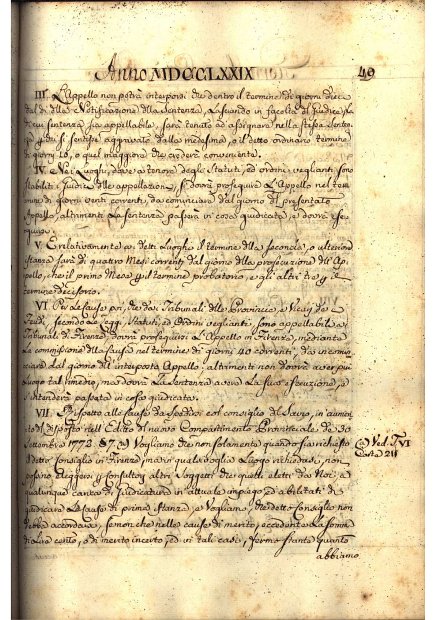 Anno MDCCLXXIX
49
III. L'Appello non potrà interporsi che dentro il termine di giorni dieci
dal dì della Notificazione della Sentenza, lasciando in facoltà al Giudice, la
di cui sentenza sia appellabile, sarà tenuto ad assegnare nella stessa Senten-
za a chi si sentisse aggravato dalla medesima, o il detto ordinario termine
di giorni 10, o quel maggiore che crederà conveniente.
IV. Nei Luoghi, dove a tenore degli Statuti, ed ordini veglianti sono
stabiliti i Giudici delle appellazioni, si dovrà proseguire L'Appello nel ter-
mine di giorni venti correnti, da cominciare dal giorno del presentato
Appello, altrimenti La sentenza passerà in cosa giudicata, e dovrà ese-
guirsi.
V. E relativamente a detti Luoghi il termine della seconda, o ulteriore
stanza sarà di quattro Mesi correnti dal giorno della prosecuzione dell'Ap-
pello, cioè il primo Mese per il termine probatorio, e gli altri tre per il
termine decisorio.
VI. Per le cause poi, che dai Tribunali delle Provincie, e Vicari, de
secondo Le Leggi, Statuti, ed Ordini veglianti, sono appellabili a'
Tribunali di Firenze, dovrà proseguirsi L'Appello in Firenze, mediante
La commissione della causa nel termine di giorni 40 correnti, da incomin-
ciare dal giorno dell'interposto Appello, altrimenti non dovrà aver più
luogo tal rimedio, ma dovrà La Sentenza avere La sua esecuzione, e
s'intenderà passata in cosa giudicata.
VII. Rispetto alle cause da spedirsi col consiglio di Savio, in aumen-
to al disposto nell'Editto di nuovo Compartimento Provinciale de' 30
Settembre 1772. Vogliamo che non solamente quando sia richiesto
il detto Consiglio in Firenze, ma in qualsivoglia Luogo richiedasi, non
possano eleggersi per consultori altri Soggetti che quelli eletti da Noi a
qualunque carica di giudicatura in attuale impiego, ed abilitati di
giudicare Le cause di prima stanza, e Vogliamo, che detto consiglio non
debba accordarsi, se non che nelle cause di merito, eccedente La somma
di Lire cento, o di merito incerto, ed in tali casi, fermo stante quanto
abbiamo
Ved. T. VI
Carte 211